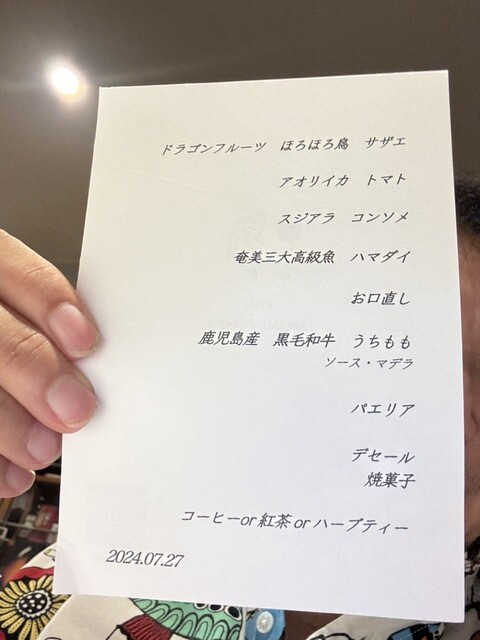 ドラゴンフルーツ　ほろほろ鳥　サザエ
アオリイカ　トマト
スジアラ　コンソメ
奄美三大高級魚　ハマダイ
お口直し
鹿児島産　黒毛和牛　うちもも
ソース・マデラ
パエリア
デセール
焼菓子
コーヒーor 紅茶 or ハーブティー
2024.07.27